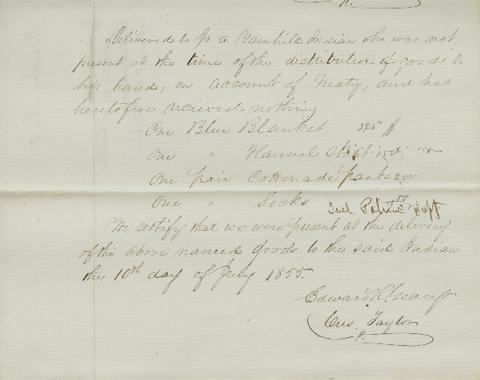 Delivered to Jo a Yamhill Indian who was not
present at the time of the distribution of goods to
his band, on account of Treaty, and has
heretofore recieved nothing
One Blue Blanket 325
One " Flannel Shirt
One pair Cottonade pants 200
One " Socks
We certify that we were present at the delivery
of the above named goods to the said Indian
this 10th day of July 1855.
Edward R. Geary
Cris. Taylor